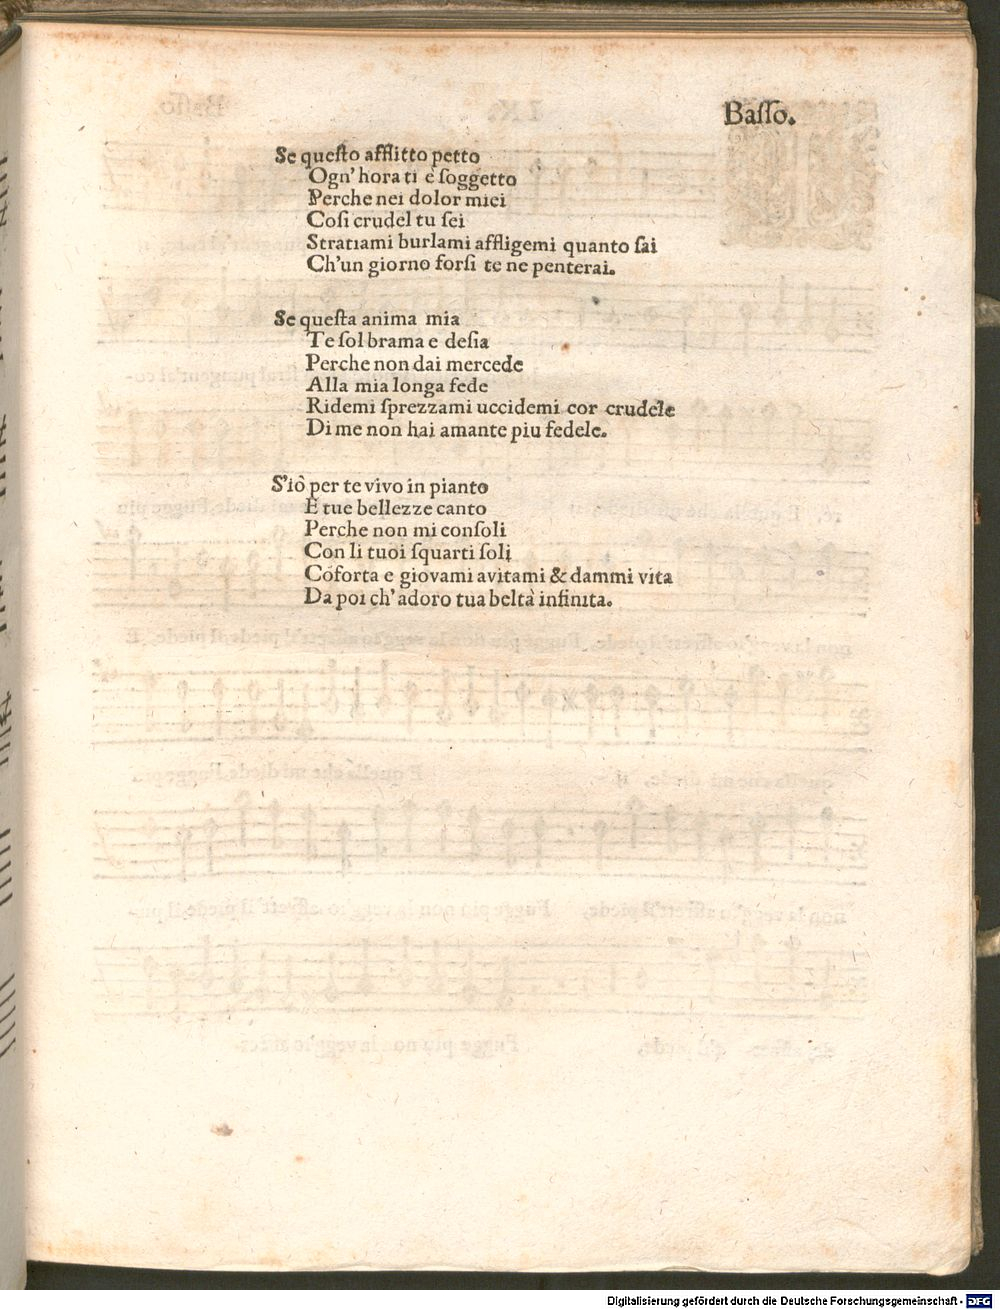 Basso.
Se questo afflitto petto
Ogn'hora ti e soggetto
Perche nei dolor miei
Cosi crudel tu sei
Stratiami burlami affligemi quanto sai
Ch'un giorno forsi te ne penterai.
Se questa anima mia
Te sol brama e desia
Perche non dai mercede
Alla mia longa fede
Ridemi sprezzami uccidemi cor crudele
Di me non hai amante piu fedele.
S'iò per te vivo in pianto
E tue bellezze canto
Perche non mi consoli
Con li tuoi squarti soli
Cōforta e giovami avitami & dammi vita
Da poi ch'adoro tua beltà infinita.
Digitalisierung gefördert durch die Deutsche Forschungsgemeinschaft - DFG